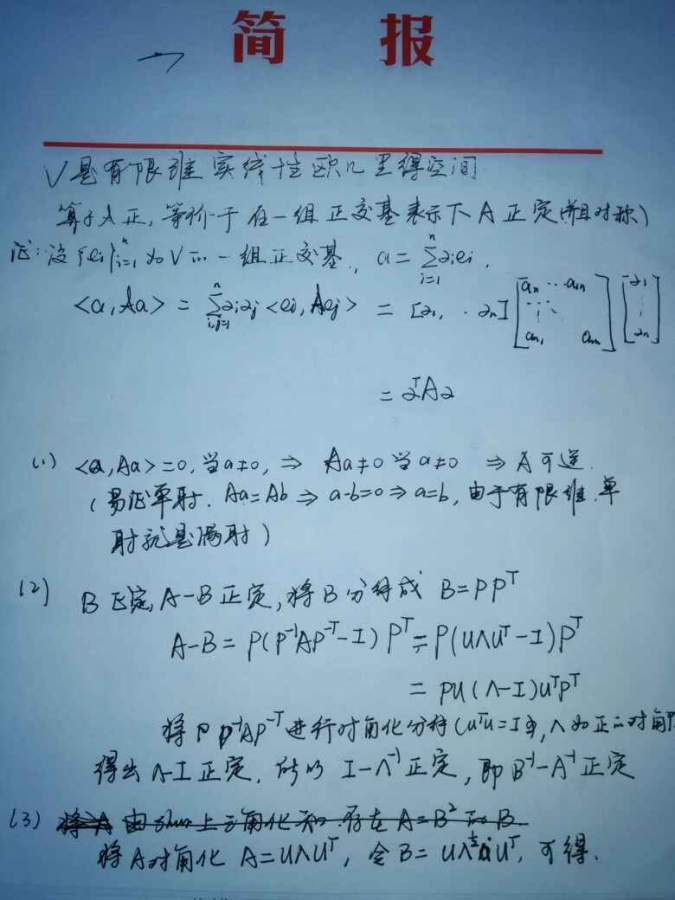 简 报
一
V是有限维实线性欧几里得空间
算子A正,等价于在一组正交基表示下A正定(并且对称)
证:设{ei}ⁿᵢ₌₁为V的一组正交基, a = Σⁿᵢ₌₁ αiei.
<a, Aa> = Σⁿᵢ,ⱼ₌₁ αiαj <ei, Aej> = [α1, ‥ αn] [a11 ‥ a1n ⋮ an1 ann] [α1 ⋮ αn]
= αᵀAα
(1) <a, Aa> =0, 当a≠0, ⇒ Aa≠0 当a≠0 ⇒ A可逆.
(易证单射. Aa=Ab ⇒ a-b=0 ⇒ a=b, 由于有限维.单
射就是满射)
(2) B正定, A-B正定, 将B分解成 B=PPᵀ
A-B = P(P⁻¹AP⁻ᵀ-I)Pᵀ = P(UΛUᵀ-I)Pᵀ
= PU(Λ-I)UᵀPᵀ
将P P⁻¹AP⁻ᵀ进行对角化分解(UᵀU=I, Λ为正的对角
得出 Λ-I 正定. 所以 I-Λ⁻¹ 正定, 即 B⁻¹-A⁻¹ 正定
(3) 将A 由 上三角化知 存在 A=B² 的 B
将A对角化 A=UΛUᵀ, 令B= UΛ^½Uᵀ, 可得.